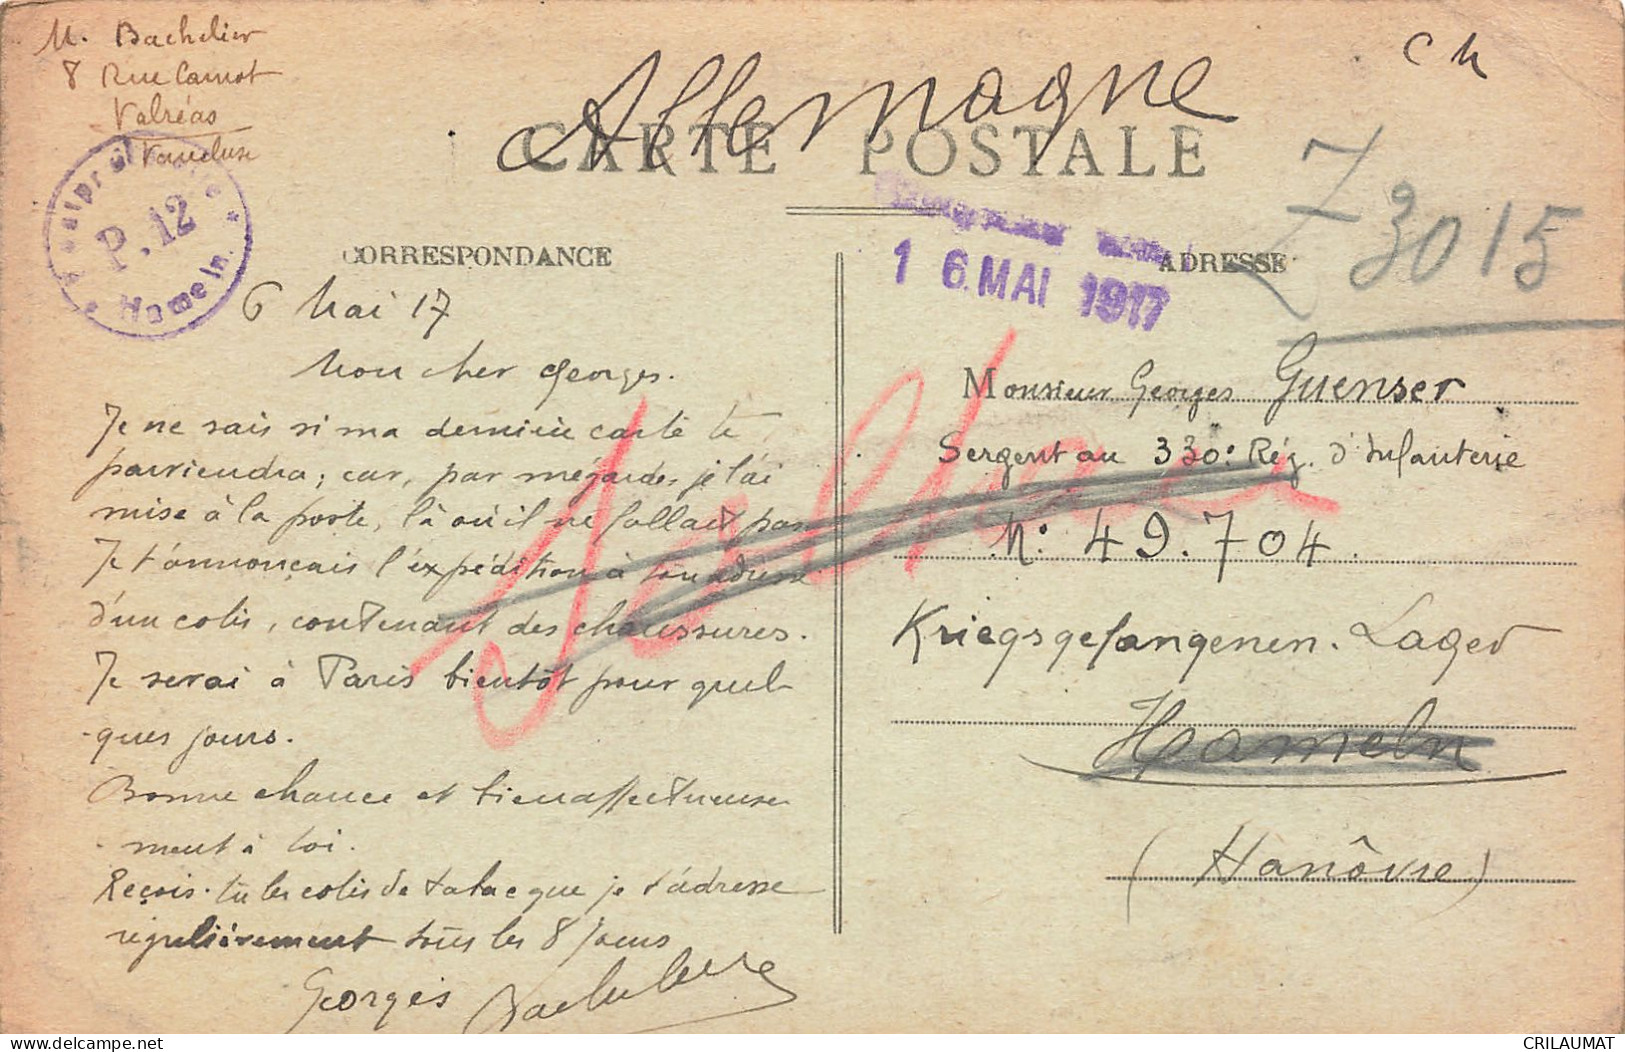 M. Bachelier
8 Rue Carnot
Valréas
Vaucluse
Allemagne
CARTE POSTALE
P. 12
Hameln.
16 MAI 1917
Z 3015
CORRESPONDANCE
ADRESSE
6 Mai 17
Mon cher Georges.
Je ne sais si ma dernière carte te
parviendra; car, par mégarde, je l'ai
mise à la poste, là où il ne fallait pas
Je t'annonçais l'expédition à ton adresse
d'un colis, contenant des chaussures.
Je serai à Paris bientôt pour quel-
ques jours.
Bonne chance et bien affectueuse
ment à toi.
Reçois-tu les colis de tabac que je t'adresse
régulièrement tous les 8 jours
Georges Bachelier
Monsieur Georges Guenser
Sergent au 330e Rég. d'Infanterie
N° 49.704.
Kriegsgefangenen. Lager
Hameln
(Hanôvre)
CRILAUMAT